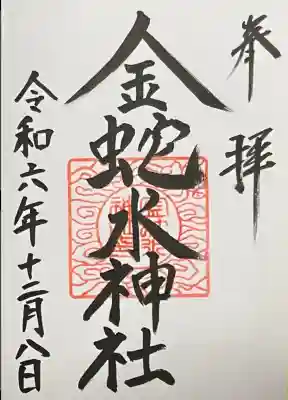 奉拝
金蛇水神社
令和六年十二月八日